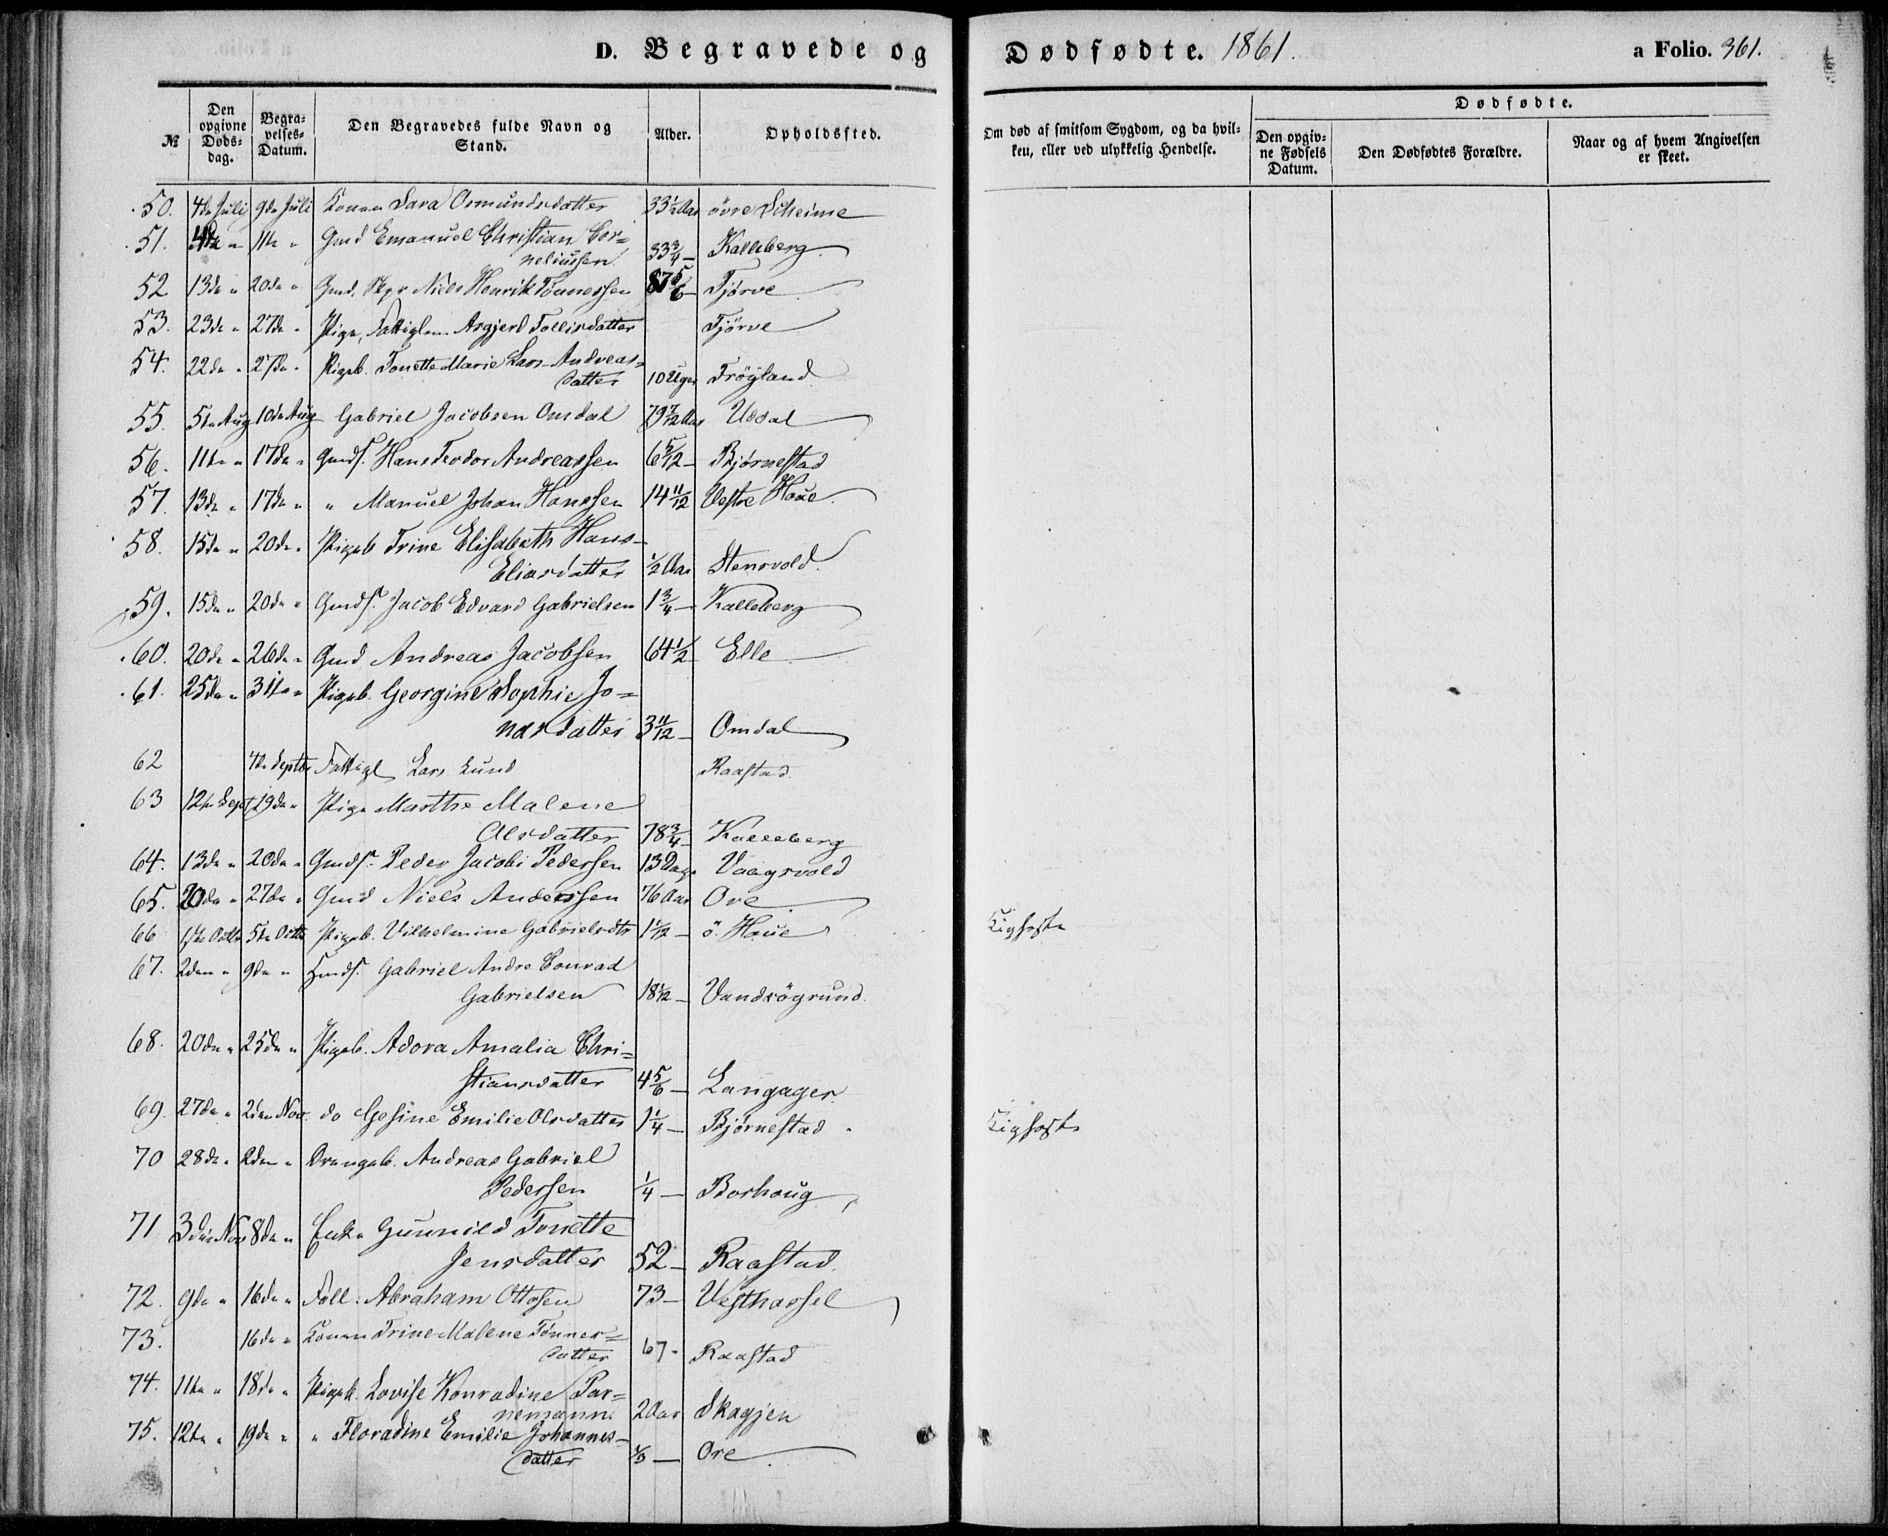 D. Begravede og Dødfødte. 1861. a Folio. 361.
№ Den opgivne Døds-dag. Begra-velses-Datum. Den Begravedes fulde Navn og Stand. Alder. Opholdssted. Om død af smitsom Sygdom, og da hvil-ken, eller ved ulykkelig Hendelse. Dødfødte. Den opgiv-ne Fødsels Datum. Den Dødfødtes Forældre. Naar og af hvem Angivelsen er skeet.
50. 4de Juli 9de Juli Konen Sara Osmundsdatter 33 1/2 Aar övre Scheime
51. 4de " 11te " Gmd Emanuel Christian Cor=
neliussen 33 3/4 — Kalleberg
52 13de " 20de " Gmd. Niels Henrik Tønnessen 87 5/6 — Tjørve
53. 23de " 27de " Pige, Fattiglem Asgjerd Tollisdatter Tjörve
54. 22de " 27de " Pigeb. Tonette Marie Lars Andreas=
datter 10 Uger Fröyland
55. 5te Aug 10de Aug Gabriel Jacobsen Omdal 79 7/12 Aar Uddal
56. 11te " 17de " Gmds. Hans Teodor Andreassen 6 5/12 — Bjørnestad
57. 13de " 17de " " Manuel Johan Hanssen 14 11/12 Vestre Haue
58. 15de " 20de " Pigeb Trine Elisabeth Hans-
Eliasdatter 1/2 Aar Stensvold.
59. 15de " 20de " Gmds. Jacob Edvard Gabrielsen 1 3/4 — Kalleberg
60. 20de " 26de " Gmd Andreas Jacobsen 64 1/2 Elle
61. 25de " 31te " Pigeb. Georgine Sophie Jo=
nasdatter 3 11/12 — Omdal
62 4de Septbr Fattigl Lars Lund Raastad.
63 12te Sept 19de " Pige Marthe Malene
Olsdatter 78 3/4 — Kalleberg
64. 13de " 20de " Gmds. Peder Jacobi Pedersen 13 Dage Vaagsvold
65. 20de " 27de " Gmd Niels Anderssen 76 Aar Ore
66 1ste Octbr 5te Octbr Pigeb. Vilhelmine Gabrielsdtr 1 1/12 — ö. Haue Kighoste
67. 2den " 9de " Gabriel Andre Conrad
Gabrielsen 18 1/2 — Vandsögrund.
68. 20de " 25de " Pigeb. Adora Amalia Chri=
stiansdatter 4 5/6 — Langager
69. 27de " 2den Nov. do Gesine Emilie Olsdatter 1 1/4 — Bjørnestad Kighoste
70 28de " 2den " Drengeb. Andreas Gabriel
Pedersen 1/4 — Borhaug
71 3die Nov 8de " Enke Gunnild Tonette
Jensdatter 52 — Raastad.
72. 9de " 16de " Abraham Ottosen 73 — Vesthassel
73. 16de " Konen Trine Malene Tönnes=
datter 67 - Raastad
74. 11te " 18de " Pigeb. Lovise Konradine Par=
nemann. 2 Aar Skagjen
75. 12te " 19de " " Floradine Emilie Johannes-
datter — Ore